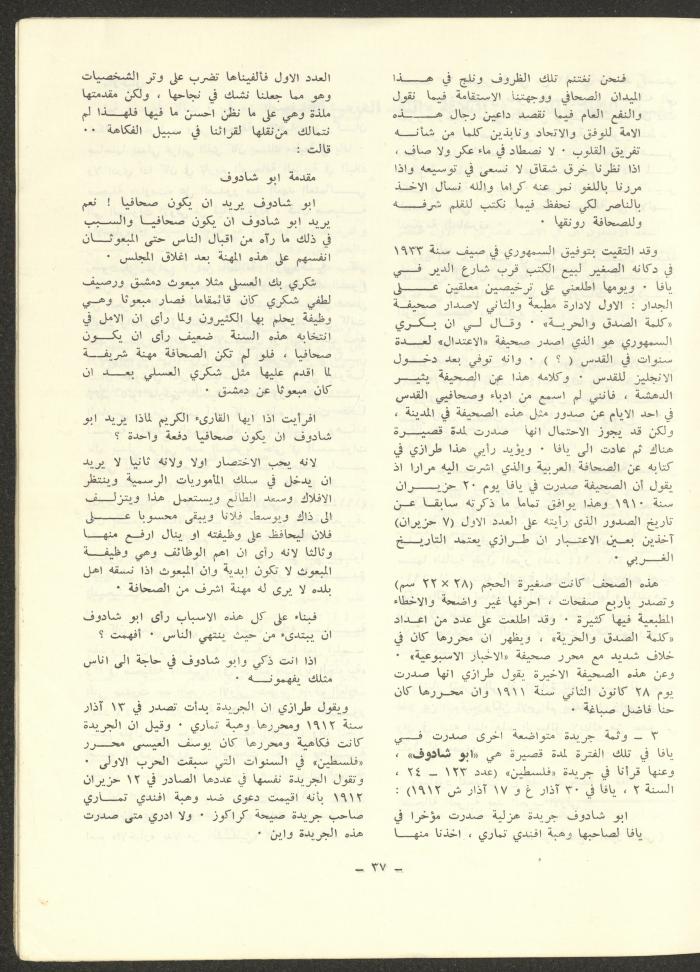 فنحن نغتنم تلك الظروف ونلج في هـــذا
الميدان الصحافي ووجهتنا الاستقامة فيما نقول
والنفع العام فيما نقصد داعين رجال هــــذه
الامة للوفق والاتحاد ونابذين كلما من شأنـــه
تفريق القلوب ٠ لا نصطاد في ماء عكر ولا صاف ،
اذا نظرنا خرق شقاق لا نسعى في توسيعه واذا
مررنا باللغو نمر عنه كراما والله نسأل الاخـذ
بالناصر لكي نحفظ فيما نكتب للقلم شرفــــه
وللصحافة رونقها ٠
وقد التقيت بتوفيق السمهوري في صيف سنة ١٩٣٣
في دكانه الصغير لبيع الكتب قرب شارع الدير فــــي
يافا ٠ ويومها اطلعني على ترخيصين معلقين علـــى
الجدار : الاول لادارة مطبعة والثاني لاصدار صحيفة
«كلمة الصدق والحرية» ٠ وقال لـي ان بـكـري
السمهوري هو الذي اصدر صحيفة «الاعتدال» لعـدة
سنوات في القدس ( ؟ ) ٠ وانه توفي بعد دخــول
الانجليز للقدس ٠ وكلامه هذا عن الصحيفة يثيـر
الدهشة ، فانني لم اسمع من ادباء وصحافيي القدس
في احد الايام عن صدور مثل هذه الصحيفة في المدينة ،
ولكن قد يجوز الاحتمال انها صدرت لمدة قصيــرة
هناك ثم عادت الى يافا ٠ ويؤيد رأيي هذا طرازي في
كتابه عن الصحافة العربية والذي اشرت اليه مرارا اذ
يقول أن الصحيفة صدرت في يافا يوم ٢٠ حزيـــران
سنة ١٩١٠ وهذا يوافق تماما ما ذكرته سابقـا عـن
تاريخ الصدور الذى رأيته على العدد الاول (٧ حزيران)
آخذين بعـين الاعتبـار ان طـرازي يعتمد التاريـخ
الغــربي ٠
هذه الصحف كانت صغيرة الحجم (٢٨ × ٢٢ سم)
وتصدر باربع صفحات ، احرفها غير واضحة والاخطاء
المطبعية فيها كثيرة ٠ وقد اطلعت على عدد من اعـداد
«كلمة الصدق والحرية» ، ويظهر ان محررها كان في
خلاف شديد مع محرر صحيفة «الاخبار الاسبوعية» ٠
وعن هذه الصحيفة الاخيرة يقول طرازي انها صدرت
يوم ٢٨ كانون الثاني سنة ١٩١١ وان محـررها كان
حنا فاضل صباغة ٠
٣ ــ وثمة جريدة متواضعة اخرى صدرت فــــي
يافا في تلك الفترة لمدة قصيرة هي «ابو شادوف» ،
وعنها قرأنا في جريدة «فلسطين» (عدد ١٢٣ ــ ٢٤ ،
السنة ٢ ، يافا في ٣٠ آذار غ و ١٧ آذار ش ١٩١٢) :
ابو شادوف جريدة هزلية صدرت مؤخرا في
يافا لصاحبها وهبة افندي تماري ، اخذنا منهــا
العدد الاول فألفيناها تضرب على وتر الشخصيات
وهو مما جعلنا نشك في نجاحها ، ولكن مقدمتها
ملذة وهي على ما نظن احسن ما فيها فلهــذا لم
نتمالك من نقلها لقرائنا في سبيل الفكاهة ٠٠
قالت :
مقدمة ابو شادوف
ابو شادوف يريد ان يكون صحافيا ! نعم
يريد ابو شادوف ان يكون صحافيـا والسـبب
في ذلك ما رآه من اقبال الناس حتى المبعوثــان
انفسهم على هذه المهنة بعد اغلاق المجلس ٠
شكري بك العسلي مثلا مبعوث دمشق ورصيف
لطفي شكري كان قائمقاما فصار مبعوثا وهــي
وظيفة يحلم بها الكثيرون ولما رأى ان الامل في
انتخابه هذه السنة ضعيف رأى ان يكــون
صحافيا ، فلو لم تكن الصحافة مهنة شريفــة
لما اقدم عليها مثل شكري العسلي بعـــد ان
كان مبعوثا عن دمشق ٠
افرأيت اذا ايها القارىء الكريم لماذا يريد ابو
شادوف ان يكون صحافيا دفعة واحدة ؟
لانه يحب الاختصار اولا ولانه ثانيا لا يريد
ان يدخل في سلك المأموريات الرسمية وينتظر
الافلاك وسعد الطالع ويستعمل هذا ويتزلــف
الى ذاك ويوسط فلانا ويبقى محسوبا علـــى
فلان ليحافظ على وظيفته او ينال ارفـع منهــا
وثالثا لانه رأى ان اهم الوظائف وهي وظيفــة
المبعوث لا تكون ابدية وان المبعوث اذا نسقه اهـل
بلده لا يرى له مهنة اشرف من الصحافة ٠
فبناء على كل هذه الاسباب رأى ابو شادوف
ان يبتدىء من حيث ينتهي الناس ٠ أفهمت ؟
اذا انت ذكي وابو شادوف في حاجة الى اناس
مثلك يفهمونـــه ٠
ويقول طرازي ان الجريدة بدأت تصدر في ١٣ آذار
سنة ١٩١٢ ومحررها وهبة تماري ٠ وقيل ان الجريدة
كانت فكاهية ومحررها كان يوسف العيسى محــرر
«فلسطين» في السنوات التي سبقت الحرب الاولى ٠
وتقول الجريدة نفسها في عددها الصادر في ١٢ حزيران
١٩١٢ بأنه اقيمت دعوى ضد وهبة افندي تمـاري
صاحب جريدة صيحة كراكوز ٠ ولا ادري متى صدرت
هذه الجريدة واين ٠
ــ ٣٧ ــ